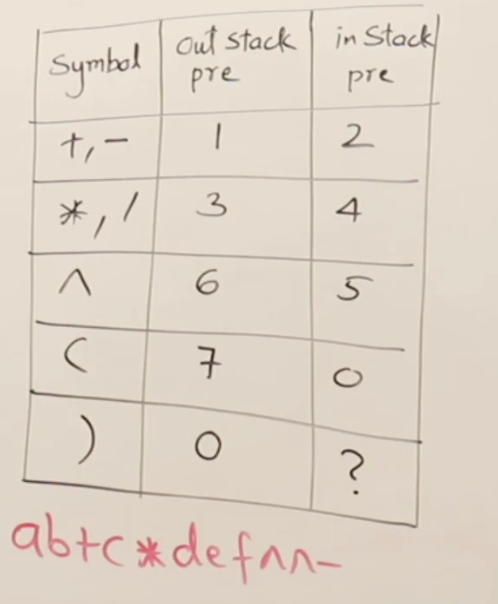 Symbol out stack pre in Stack pre
+, - 1 2
*, / 3 4
^ 6 5
( 7 0
) 0 ?
ab+c*def^^-